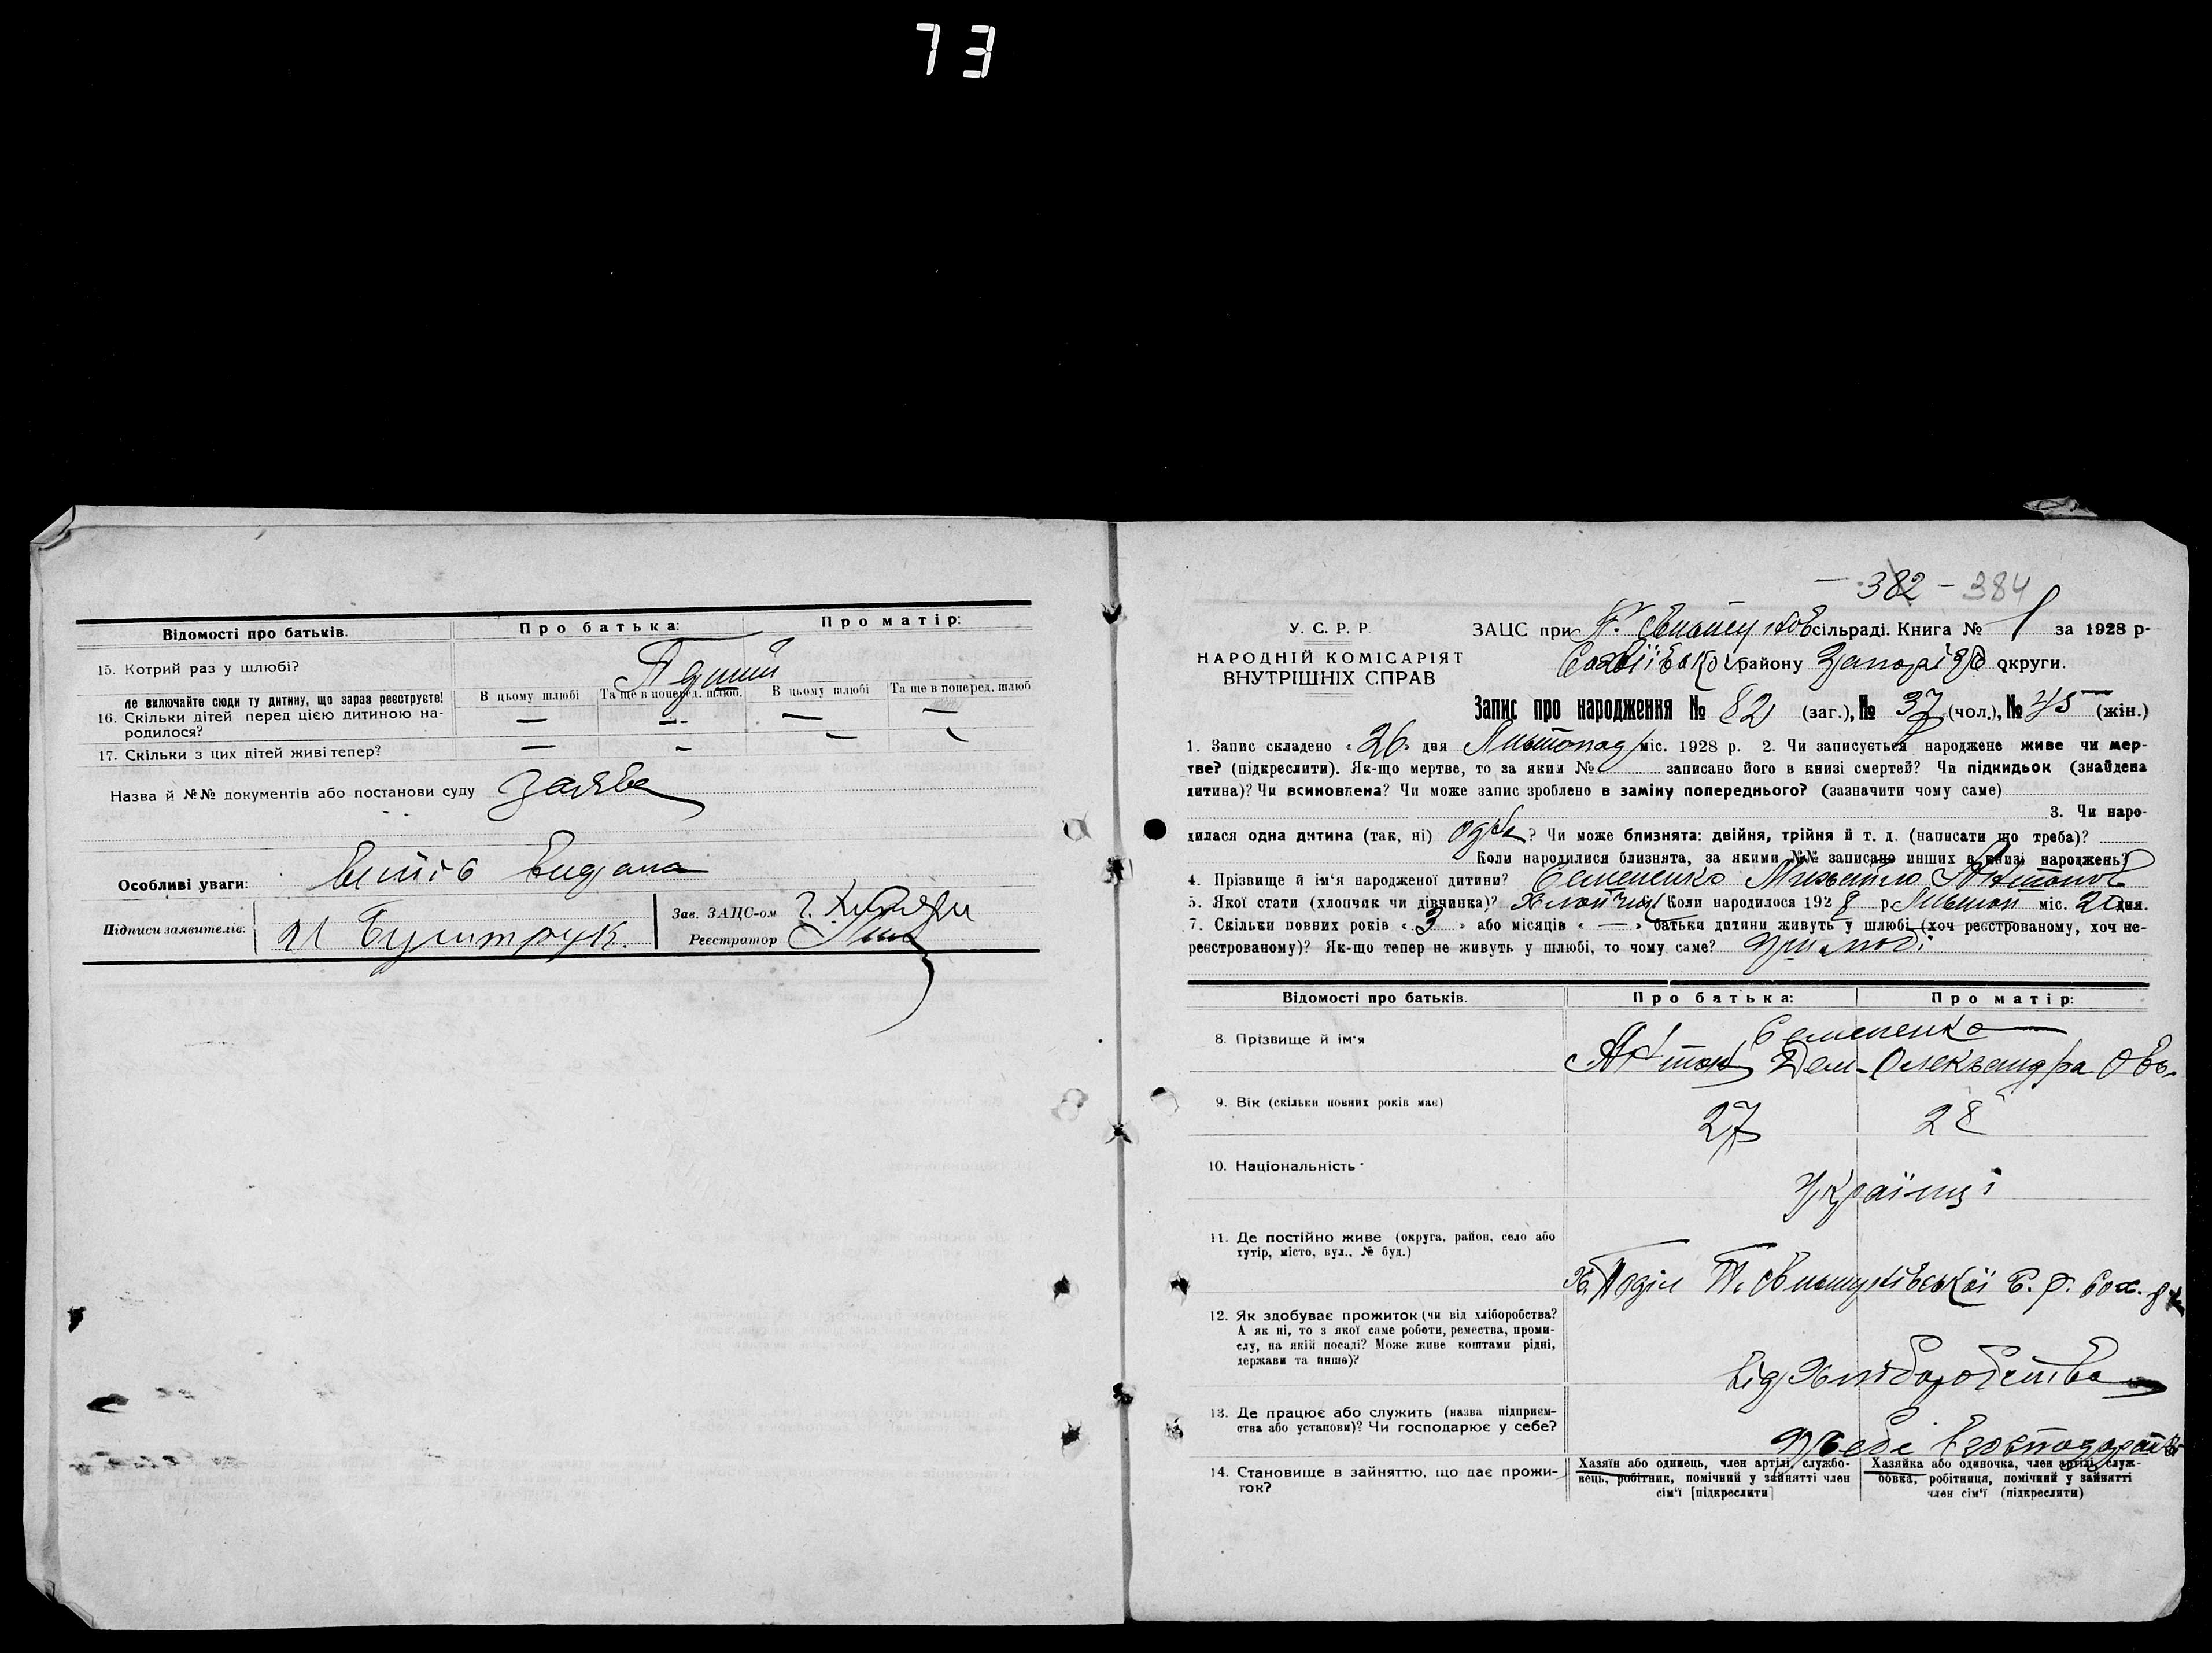 73
Відомості про батьків. Про батька: Про матір:
15. Котрий раз у шлюбі?
Не включайте сюди ту дитину, що зараз реєструєте! В цьому шлюбі Та ще в поперед. шлюб. В цьому шлюбі Та ще в поперед. шлюб
16. Скільки дітей перед цією дитиною на-
родилося? — — — —
17. Скільки з цих дітей живі тепер? — — — —
Назва й №№ документів або постанови суду Заява
Особливі уваги: видана
Підписи заявителів: Зав. ЗАЦС-ом
Реєстратор
— 382 — 384
У. С. Р. Р. ЗАЦС при сільраді. Книга № 1 за 1928 р.
НАРОДНІЙ КОМІСАРІЯТ району округи.
ВНУТРІШНІХ СПРАВ
Запис про народження № 82 (заг.), № 37 (чол.), № 45 (жін.)
1. Запис складено «26» дня Листопад міс. 1928 р. 2. Чи записується народжене живе чи мер-
тве? (підкреслити). Як-що мертве, то за яким № записано його в книзі смертей? Чи підкидьок (знайдена
дитина)? Чи всиновлена? Чи може запис зроблено в заміну попереднього? (зазначити чому саме)
3. Чи наро-
дилася одна дитина (так, ні) одна? Чи може близнята: двійня, трійня й т. д. (написати що треба)?
Коли народилися близнята, за якими №№ записано инших в книзі народжень?
4. Прізвище й ім'я народженої дитини? Семененко Михайло Антонов
5. Якої стати (хлопчик чи дівчинка)? Хлопчик Коли народилося 1928 р. Листоп міс. 20 дня.
7. Скільки повних років «3» або місяців «—» батьки дитини живуть у шлюбі (хоч реєстрованому, хоч не-
реєстрованому)? Як-що тепер не живуть у шлюбі, то чому саме? у шлюбі
Відомості про батьків. Про батька: Про матір:
Семененко
8. Прізвище й ім'я Антон Дем. Олександра Ов.
9. Вік (скільки повних років має) 27 28
10. Національність Українці
11. Де постійно живе (округа, район, село або
хутір, місто, вул., № буд.)
12. Як здобуває прожиток (чи від хліборобства?
А як ні, то з якої саме роботи, ремества, проми-
слу, на якій посаді? Може живе коштами рідні,
держави та инше)? Від Хліборобства
13. Де працює або служить (назва підприєм-
ства або установи)? Чи господарює у себе? У себе в господарстві
14. Становище в зайняттю, що дає прожи-
ток?
Хазяїн або одинець, член артілі, службо-
вець, робітник, помічний у зайнятті член
сім'ї [підкреслити]
Хазяйка або одиночка, член артілі, служ-
бовка, робітниця, помічний у зайнятті
член сім'ї (підкреслити)